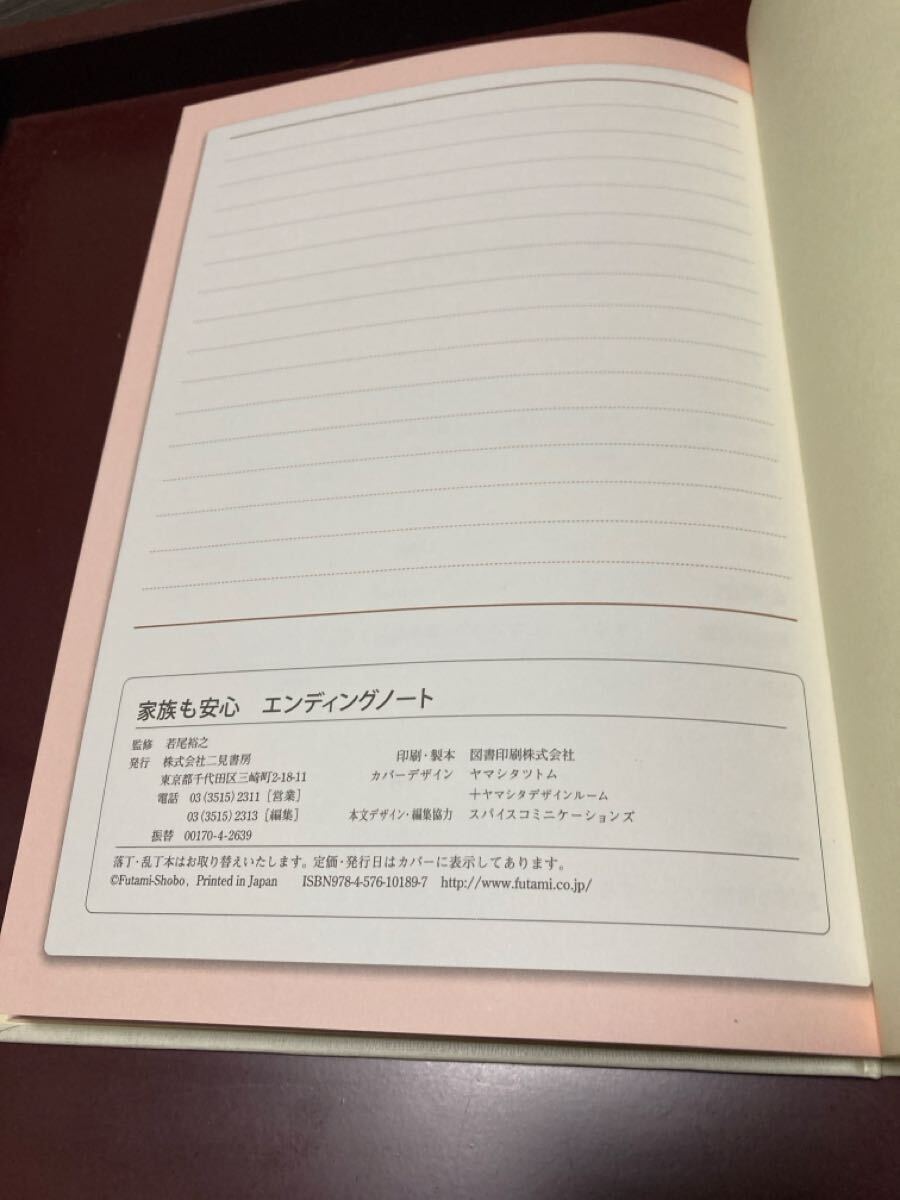 家族も安心　エンディングノート
監修　若尾裕之
発行　株式会社二見書房
東京都千代田区三崎町2-18-11
電話　03(3515)2311［営業］
03(3515)2313［編集］
振替　00170-4-2639
印刷・製本　図書印刷株式会社
カバーデザイン　ヤマシタツトム
＋ヤマシタデザインルーム
本文デザイン・編集協力　スパイスコミニケーションズ
落丁・乱丁本はお取り替えいたします。定価・発行日はカバーに表示してあります。
©Futami-Shobo, Printed in Japan　ISBN978-4-576-10189-7　http://www.futami.co.jp/